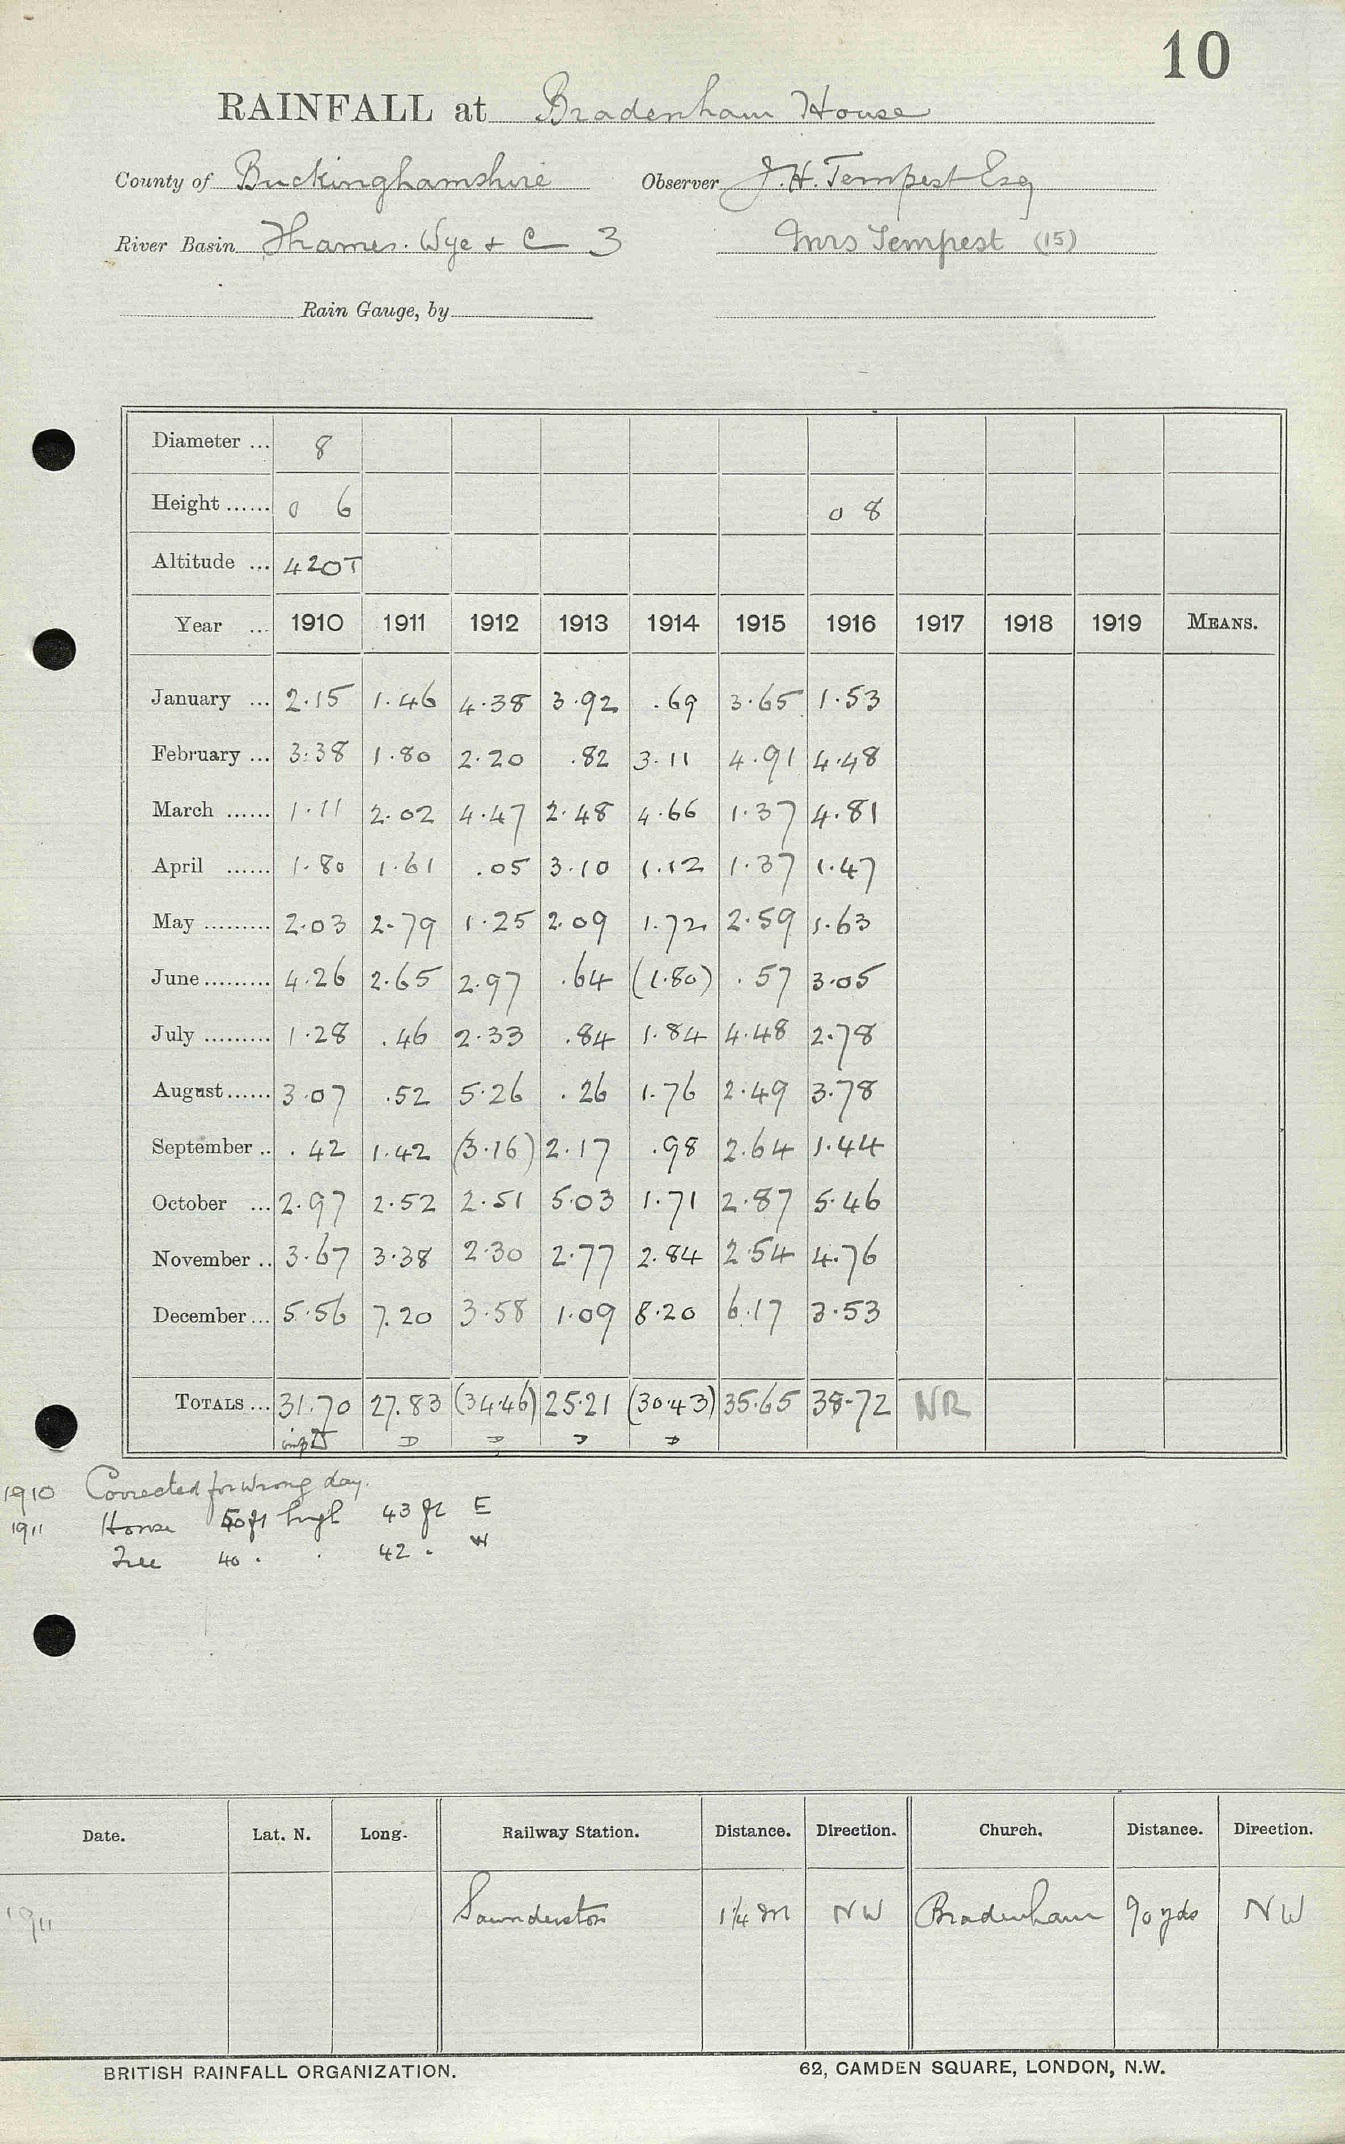 10
RAINFALL at Bradenham House
County of Buckinghamshire Observer J. H. Tempest Esq
River Basin Thames. Wye & C 3 Mrs Tempest (15)
Rain Gauge, by
Diameter ... 8
Height ...... 0 6 0 8
Altitude ... 420T
Year ... 1910 1911 1912 1913 1914 1915 1916 1917 1918 1919 MEANS.
January ... 2.15 1.46 4.38 3.92 .69 3.65 1.53
February ... 3.38 1.80 2.20 .82 3.11 4.91 4.48
March ...... 1.11 2.02 4.47 2.48 4.66 1.37 4.81
April ...... 1.80 1.61 .05 3.10 1.12 1.37 1.47
May ......... 2.03 2.79 1.25 2.09 1.72 2.59 1.63
June ......... 4.26 2.65 2.97 .64 (1.80) .57 3.05
July ......... 1.28 .46 2.33 .84 1.84 4.48 2.78
August ...... 3.07 .52 5.26 .26 1.76 2.49 3.78
September .. .42 1.42 (3.16) 2.17 .98 2.64 1.44
October ... 2.97 2.52 2.51 5.03 1.71 2.87 5.46
November .. 3.67 3.38 2.30 2.77 2.84 2.54 4.76
December ... 5.56 7.20 3.58 1.09 8.20 6.17 3.53
TOTALS ... 31.70 27.83 (34.46) 25.21 (30.43) 35.65 38.72 NR
D D D D
1910 Corrected for wrong day.
1911 House 50 ft high 43 ft E
Tree 40 . . 42 . W
Date. Lat. N. Long. Railway Station. Distance. Direction. Church. Distance. Direction.
1911 Saunderton 1¼ m NW Bradenham 90 yds NW
BRITISH RAINFALL ORGANIZATION. 62, CAMDEN SQUARE, LONDON, N.W.